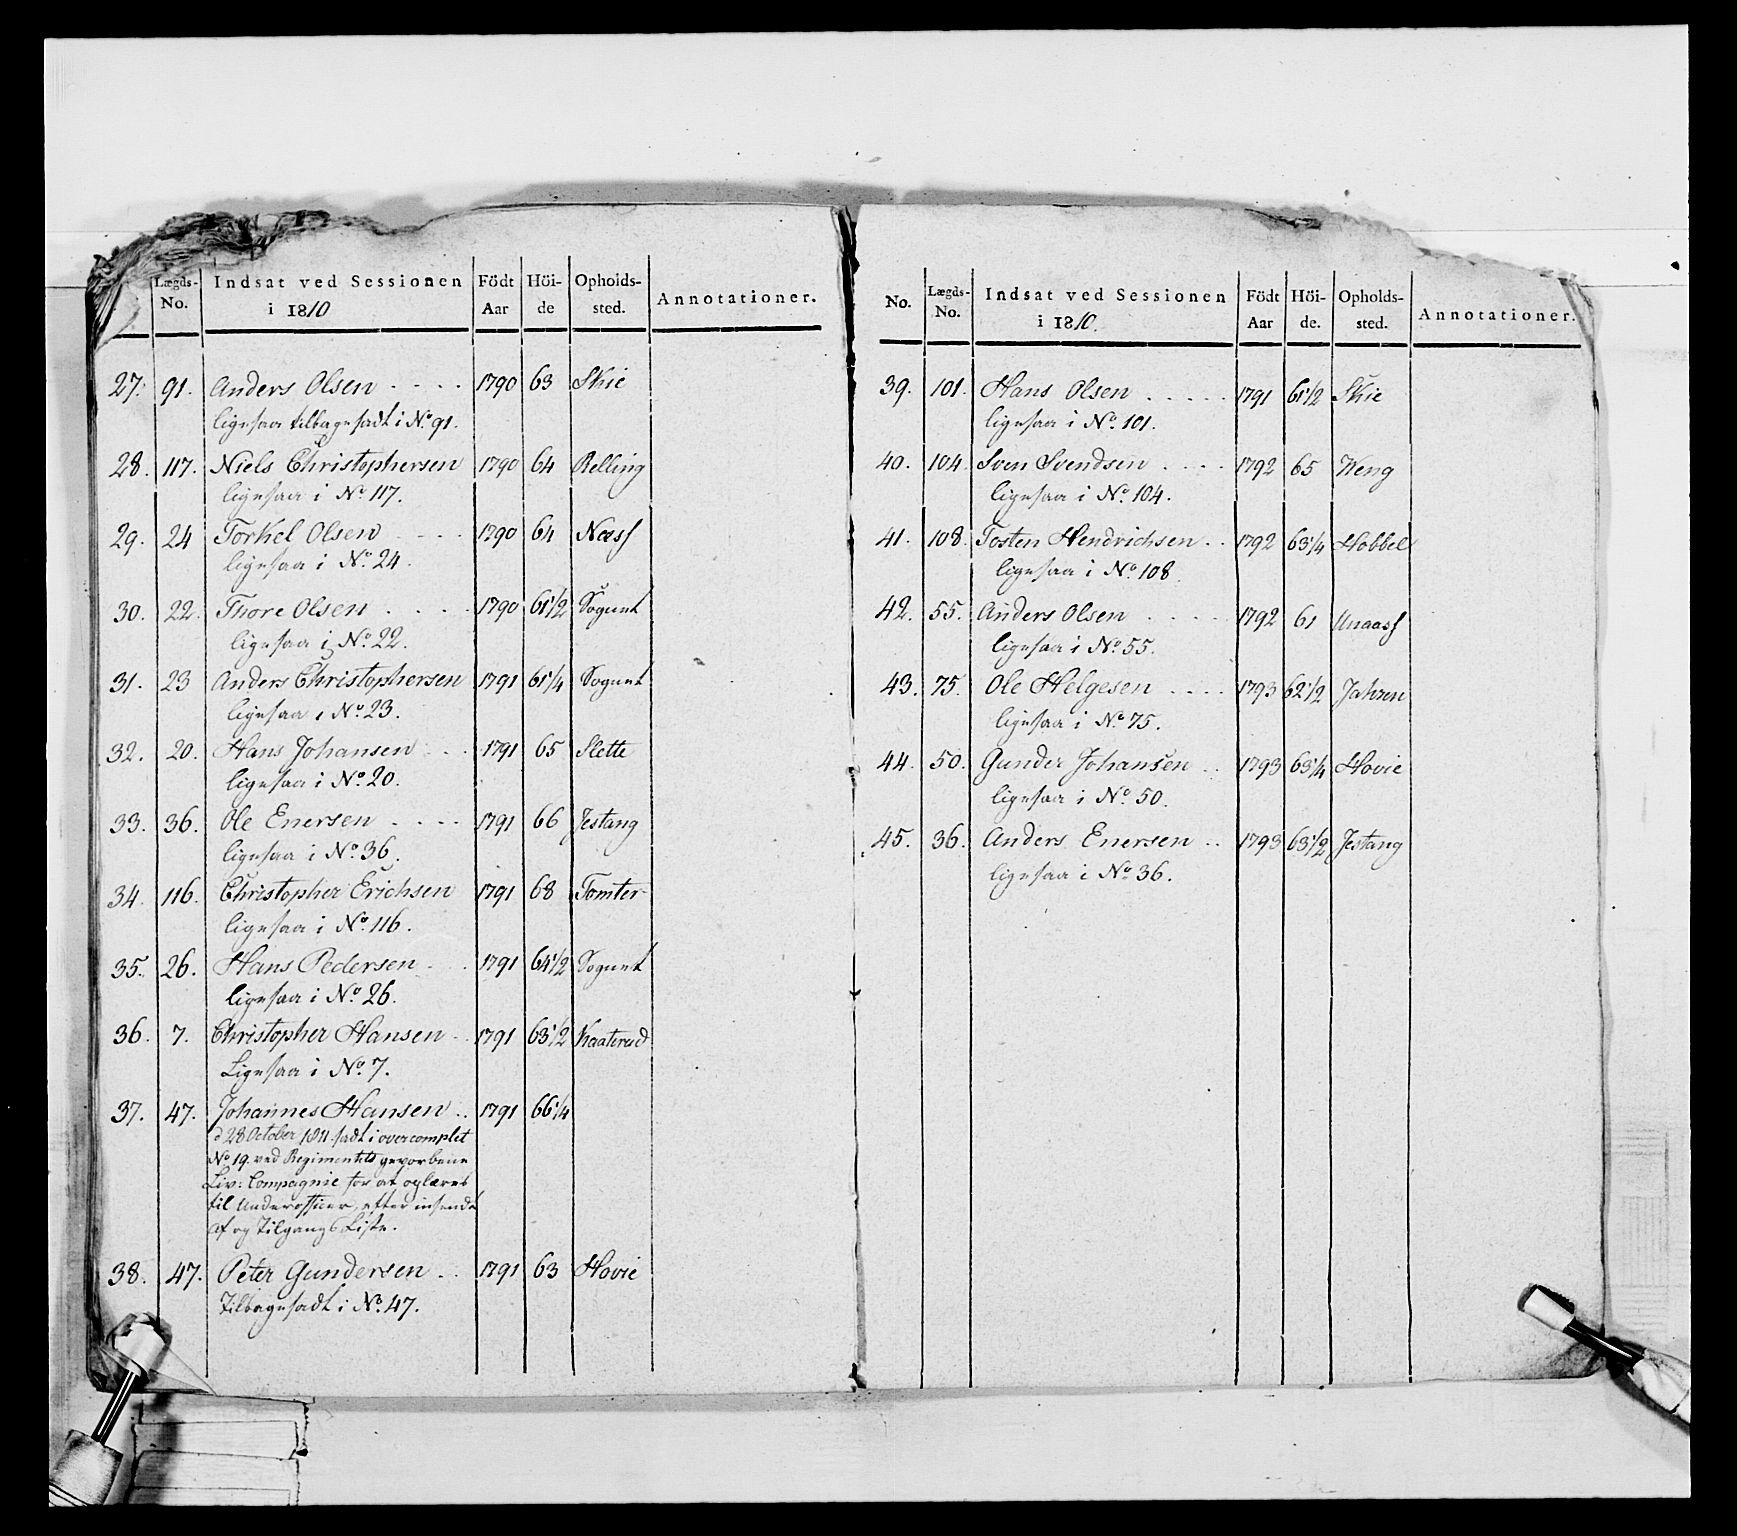 Lægds- No. Indsat ved Sessionen i 1810 Födt Aar Höi- de Opholds- sted. Annotationer.
27. 91. Anders Olsen . . . . 1790 63 Skie
ligesaa tilbagesadt i No. 91.
28. 117. Niels Christophersen 1790 64 Relling
ligesaa i No. 117.
29. 24 Torkel Olsen . . . 1790 64 Næss
ligesaa i No. 24.
30. 22. Thore Olsen . . . . 1790 61 1/2 Sogunt
ligesaa i No. 22.
31. 23 Anders Christophersen 1791 61 1/4 Sogunt
ligesaa i No. 23.
32. 20. Hans Johansen . . . 1791 65 Slette
ligesaa i No. 20.
33. 36. Ole Enersen . . . . 1791 66 Jestang
ligesaa i No. 36.
34. 116. Christopher Erichsen 1791 68 Tomter
ligesaa i No. 116.
35. 26. Hans Pedersen . . 1791 64 1/2 Sogunt
ligesaa i No. 26.
36. 7. Christopher Hansen . . 1791 63 1/2 Kaaterud
Ligesaa i No. 7.
37. 47. Johannes Hansen . . 1791 66 1/4
d 28 October 1811. sadt i overcomplet
No. 19. ved Regimentets gevorbene
Liv: Compagnie for at oplæres
til Underofficer, efter insendt
Af og Tilgangs Liste.
38. 47. Peter Gundersen . . 1791 63 Hovie
Tilbagesadt i No. 47.
No. Lægds- No. Indsat ved Sessionen i 1810. Födt Aar Höi- de. Opholds- sted. Annotationer.
39. 101. Hans Olsen . . . . . 1791 61 1/2 Skie
ligesaa i No. 101.
40. 104. Sven Svendsen . . . . 1792 65 Weng
ligesaa i No. 104.
41. 108. Tosten Hendrichsen . . 1792 63 1/4 Hobbel
ligesaa i No. 108.
42. 55. Anders Olsen . . . . 1792 61 Unaass
ligesaa i No. 55.
43. 75. Ole Helgesen . . . . 1793 62 1/2 Jahren
ligesaa i No. 75.
44. 50. Gunder Johansen . . 1793 63 1/4 Hovie
ligesaa i No. 50.
45. 36. Anders Enersen . . 1793 63 1/2 Jestang
ligesaa i No. 36.